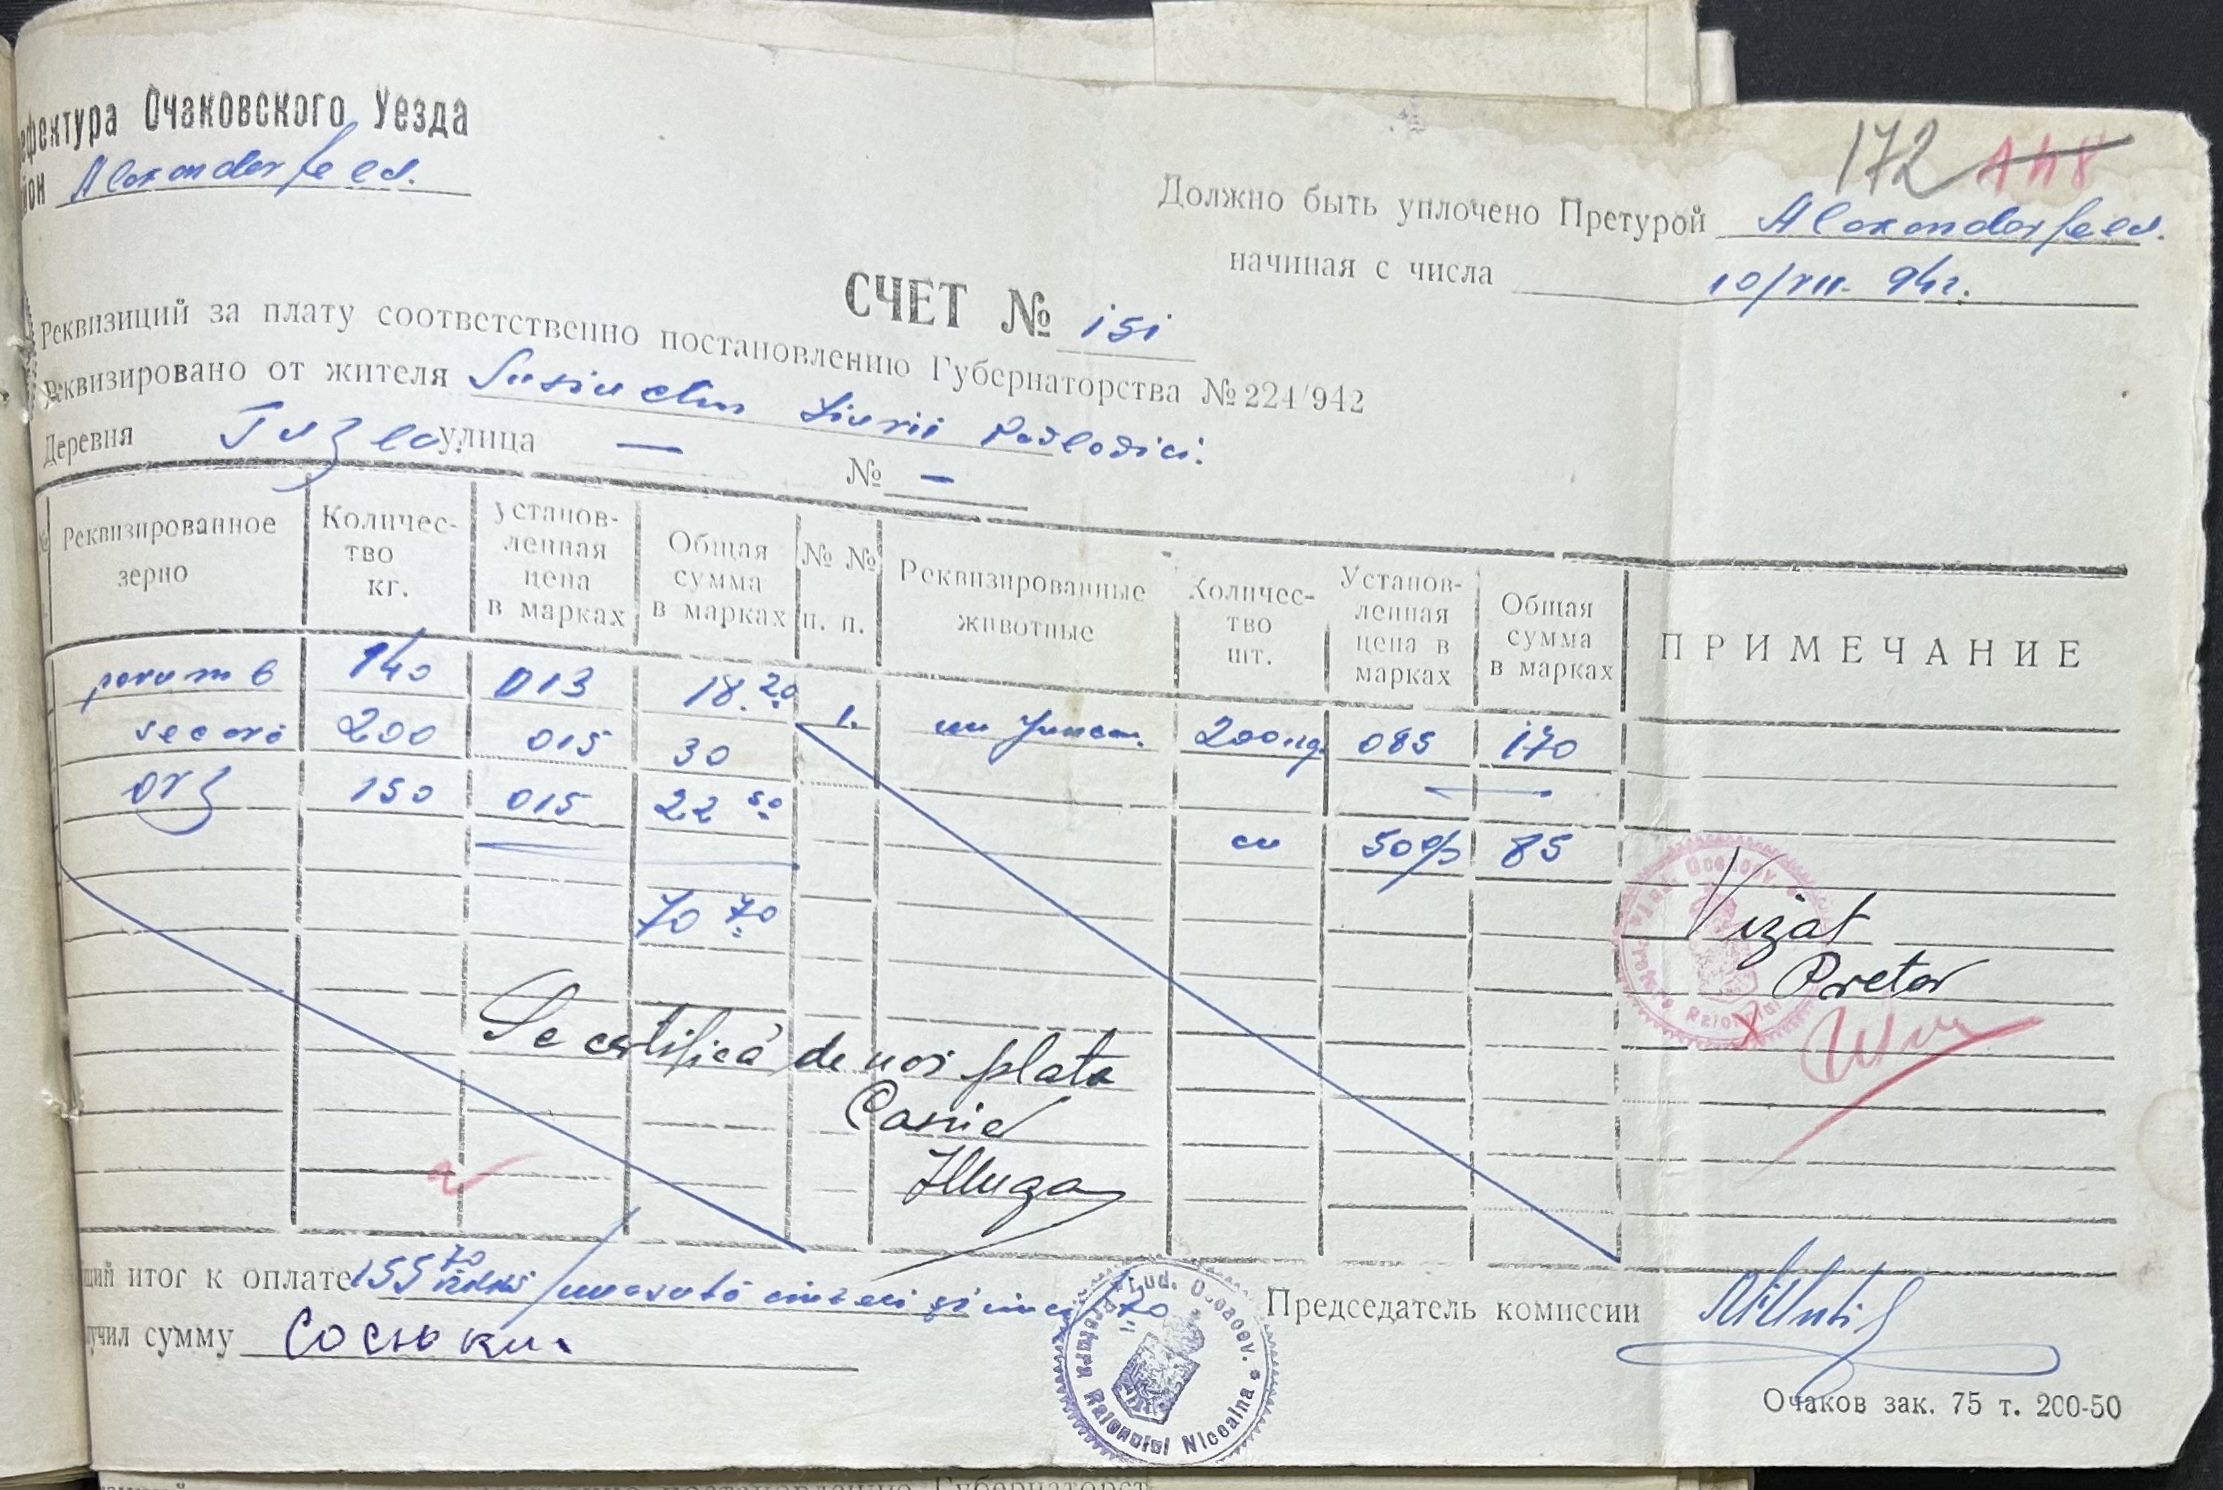 ефектура Очаковского Уезда
йон Alexanderfeld.
172 148
Должно быть уплочено Претурой Alexanderfeld.
начиная с числа 10/VII. 942.
СЧЕТ № 151
Реквизиций за плату соответственно постановлению Губернаторства № 224/942
Реквизировано от жителя
Деревня Tuzla улица — № —
Реквизированное зерно Количес- тво кг. установ- ленная цена в марках Общая сумма в марках № № п. п. Реквизированные животные Количес- тво шт. Установ- ленная цена в марках Общая сумма в марках ПРИМЕЧАНИЕ
porumb 140 013 18.20 1. 200 kg. 085 170
secară 200 015 30
orz 150 015 22 50 cu 50% 85
70 70
Vizat
Pretor
Se certifică de noi plata
Casier
щий итог к оплате 155 70 /unasută cinzeci și cinci 70
Jud. Oceacov. Pretura Raionului Nicealna
Председатель комиссии
учил сумму Сосюки
Очаков зак. 75 т. 200-50